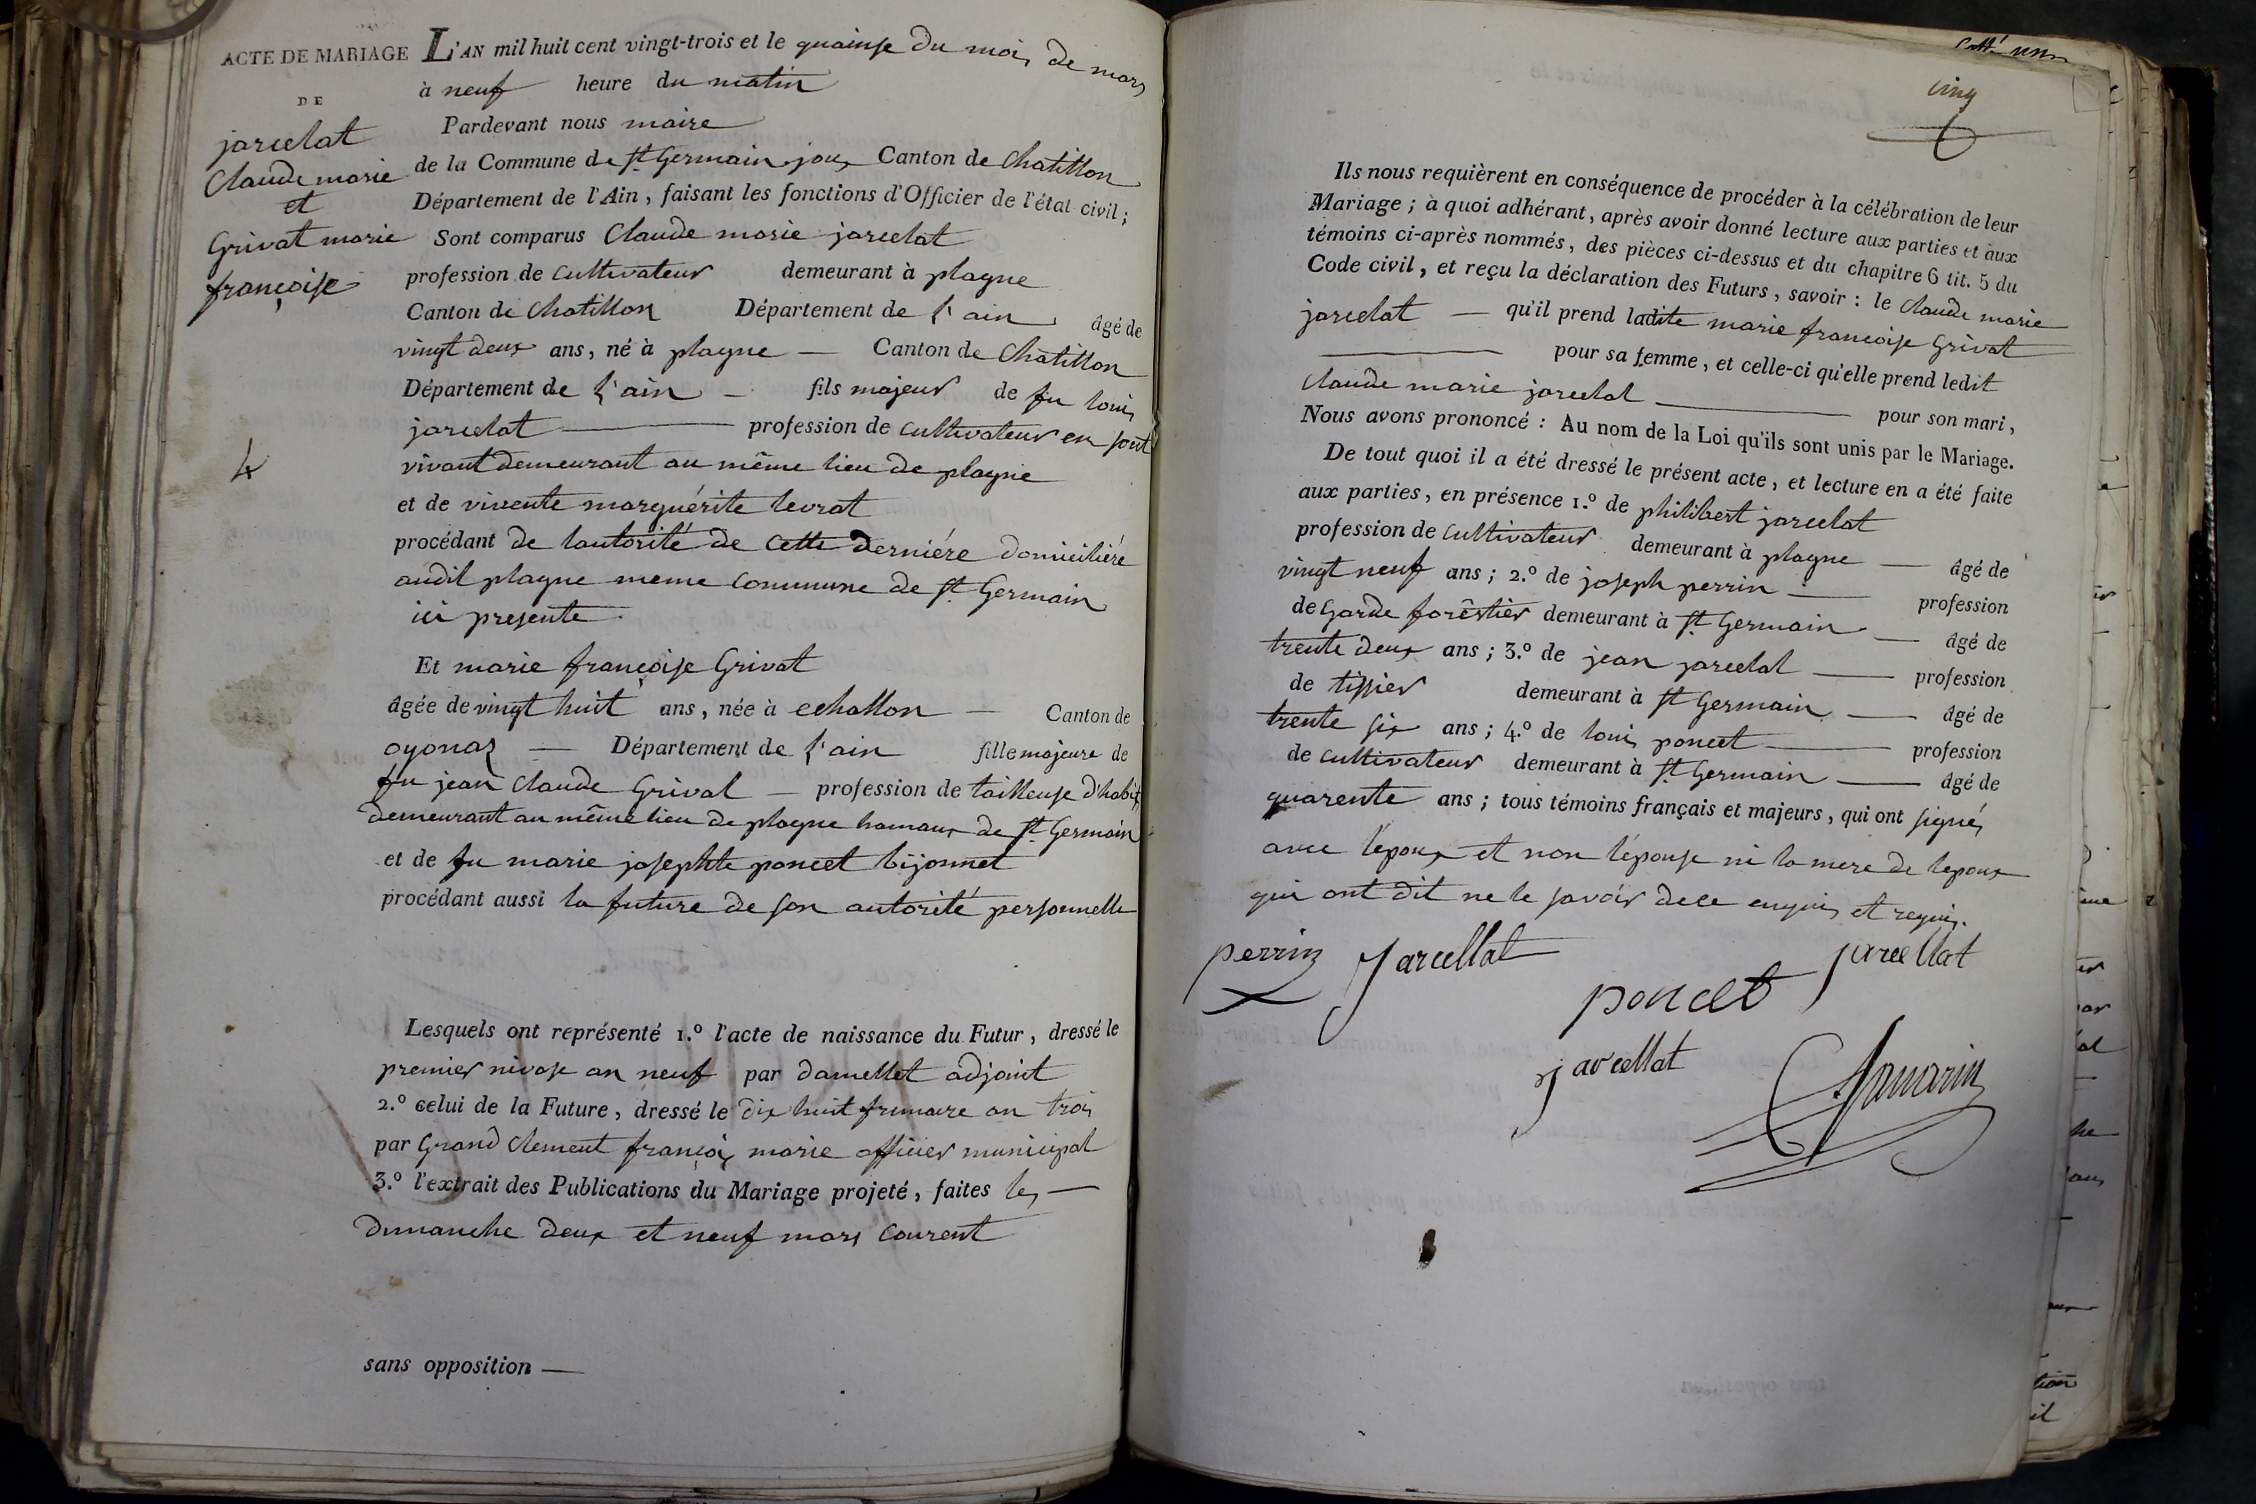 ACTE DE MARIAGE
DE
jarcelat
Claude marie
et
Grivat marie
françoise
4
L'AN mil huit cent vingt-trois et le quainse du mois de mars
à neuf heure du matin
Pardevant nous maire
de la Commune de St. Germain joux Canton de Chatillon
Département de l'Ain, faisant les fonctions d'Officier de l'état civil;
Sont comparus Claude marie jarcelat
profession de Cultivateur demeurant à plagne
Canton de Chatillon Département de l'ain âgé de
vingt deux ans, né à plagne — Canton de Chatillon
Département de l'ain — fils majeur de fu louis
jarcelat — profession de Cultivateur en sont
vivant demeurant au même lieu de plagne
et de vivente marguérite levrat
procédant de lautorité de Cette derniére domiciliére
audit plagne meme Commune de St. Germain
ici presente
Et marie françoise Grivat
âgée de vingt huit ans, née à echallon — Canton de
oyonaz — Département de l'ain fille majeure de
fu jean Claude Grivat — profession de tailleuse d'habit
demeurant au même lieu de plagne hamaux de St. Germain
et de fu marie josephte poncet bijonnet
procédant aussi la future de son autorité personnelle
Lesquels ont représenté 1.º l'acte de naissance du Futur, dressé le
premier nivose an neuf par damellet adjoint
2.º celui de la Future, dressé le dix huit frimaire an trois
par Grand Clement françois marie officier municipal
3.º l'extrait des Publications du Mariage projeté, faites les —
dimanche deux et neuf mars Courent
sans opposition —
Cotté
cinq
Ils nous requièrent en conséquence de procéder à la célébration de leur
Mariage; à quoi adhérant, après avoir donné lecture aux parties et aux
témoins ci-après nommés, des pièces ci-dessus et du chapitre 6 tit. 5 du
Code civil, et reçu la déclaration des Futurs, savoir: le Claude marie
jarcelat — qu'il prend ladite marie françoise Grivat
— pour sa femme, et celle-ci qu'elle prend ledit
Claude marie jarcelat — pour son mari,
Nous avons prononcé: Au nom de la Loi qu'ils sont unis par le Mariage.
De tout quoi il a été dressé le présent acte, et lecture en a été faite
aux parties, en présence 1.º de philibert jarcelat
profession de Cultivateur demeurant à plagne — âgé de
vingt neuf ans; 2.º de joseph perrin — profession
de Garde forêstier demeurant à St. Germain — âgé de
trente deux ans; 3.º de jean jarcelat — profession
de tissier demeurant à St. Germain — âgé de
trente six ans; 4.º de louis poncet — profession
de Cultivateur demeurant à St. Germain — âgé de
quarente ans; tous témoins français et majeurs, qui ont signés
avec l'époux et non l'épouse ni la mere de lepoux
qui ont dit ne le savoir de ce enquis et requis.
perrin Jarcellat jarcellat
poncet
jarcellat